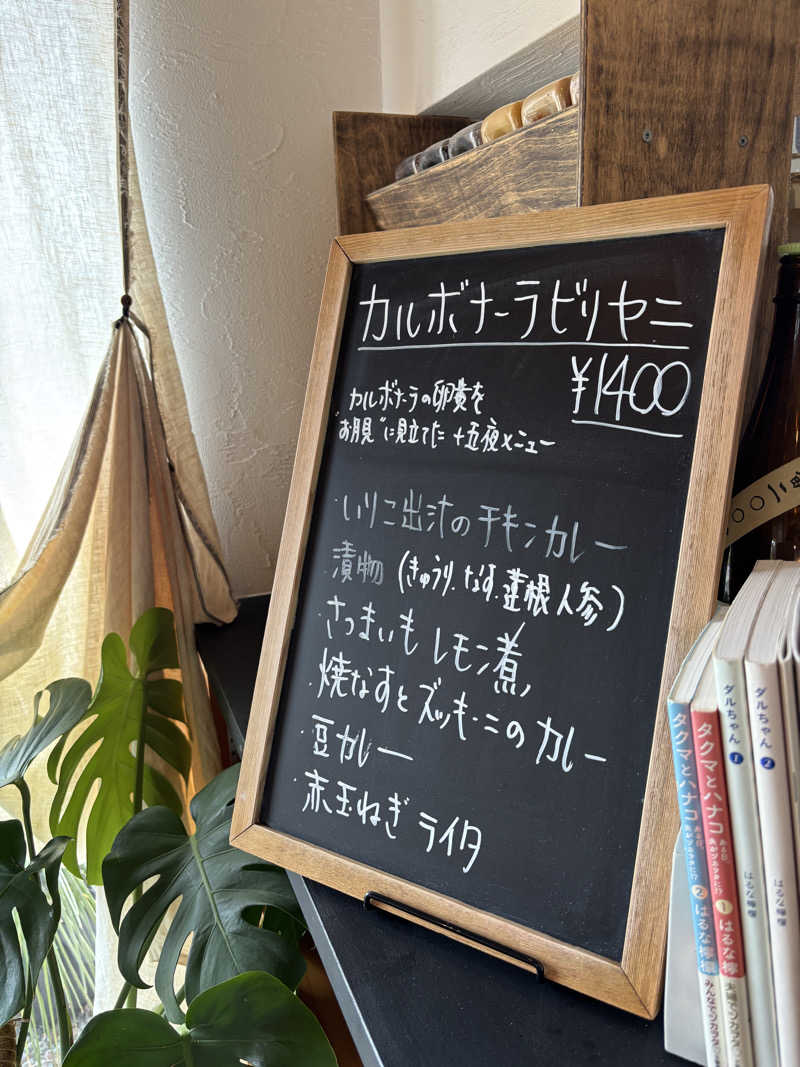 カルボナーラビリヤニ
¥1400
カルボナーラの卵黄を
"お月見"に見立てた 十五夜メニュー
・いりこ出汁のチキンカレー
・漬物 (きゅうり、なす、蓮根、人参)
・さつまいもレモン煮
・焼なすとズッキーニのカレー
・豆カレー
・赤玉ねぎライタ
ダルちゃん 1 はるな檸檬
ダルちゃん 2 はるな檸檬
タクマとハナコ 2 はるな檸檬
タクマとハナコ 1 はるな檸檬